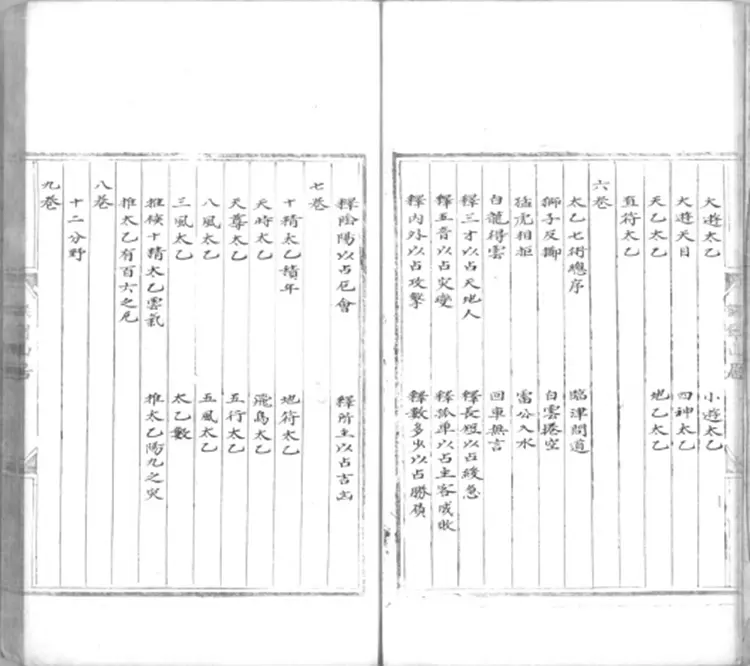 大遊太乙　小遊太乙
大遊天目　四神太乙
天乙太乙　地乙太乙
直符太乙
六卷
太乙七術總序　臨津問道
獅子反擲　白雲捲空
猛虎相拒　雷公入水
白龍得雲　回車無言
釋三才以占天地人　釋長短以占緩急
釋五音以占灾變　釋孤单以占主客成敗
釋內外以占攻擊　釋數多少以占勝負
釋陰陽以占厄會　釋所主以占吉凶
七卷
十精太乙積年　地符太乙
天時太乙　飛鳥太乙
天尊太乙　五行太乙
八風太乙　五風太乙
三風太乙　太乙數
推候十精太乙雲氣
推太乙有百六之厄　推太乙陽九之灾
八卷
十二分野
九卷